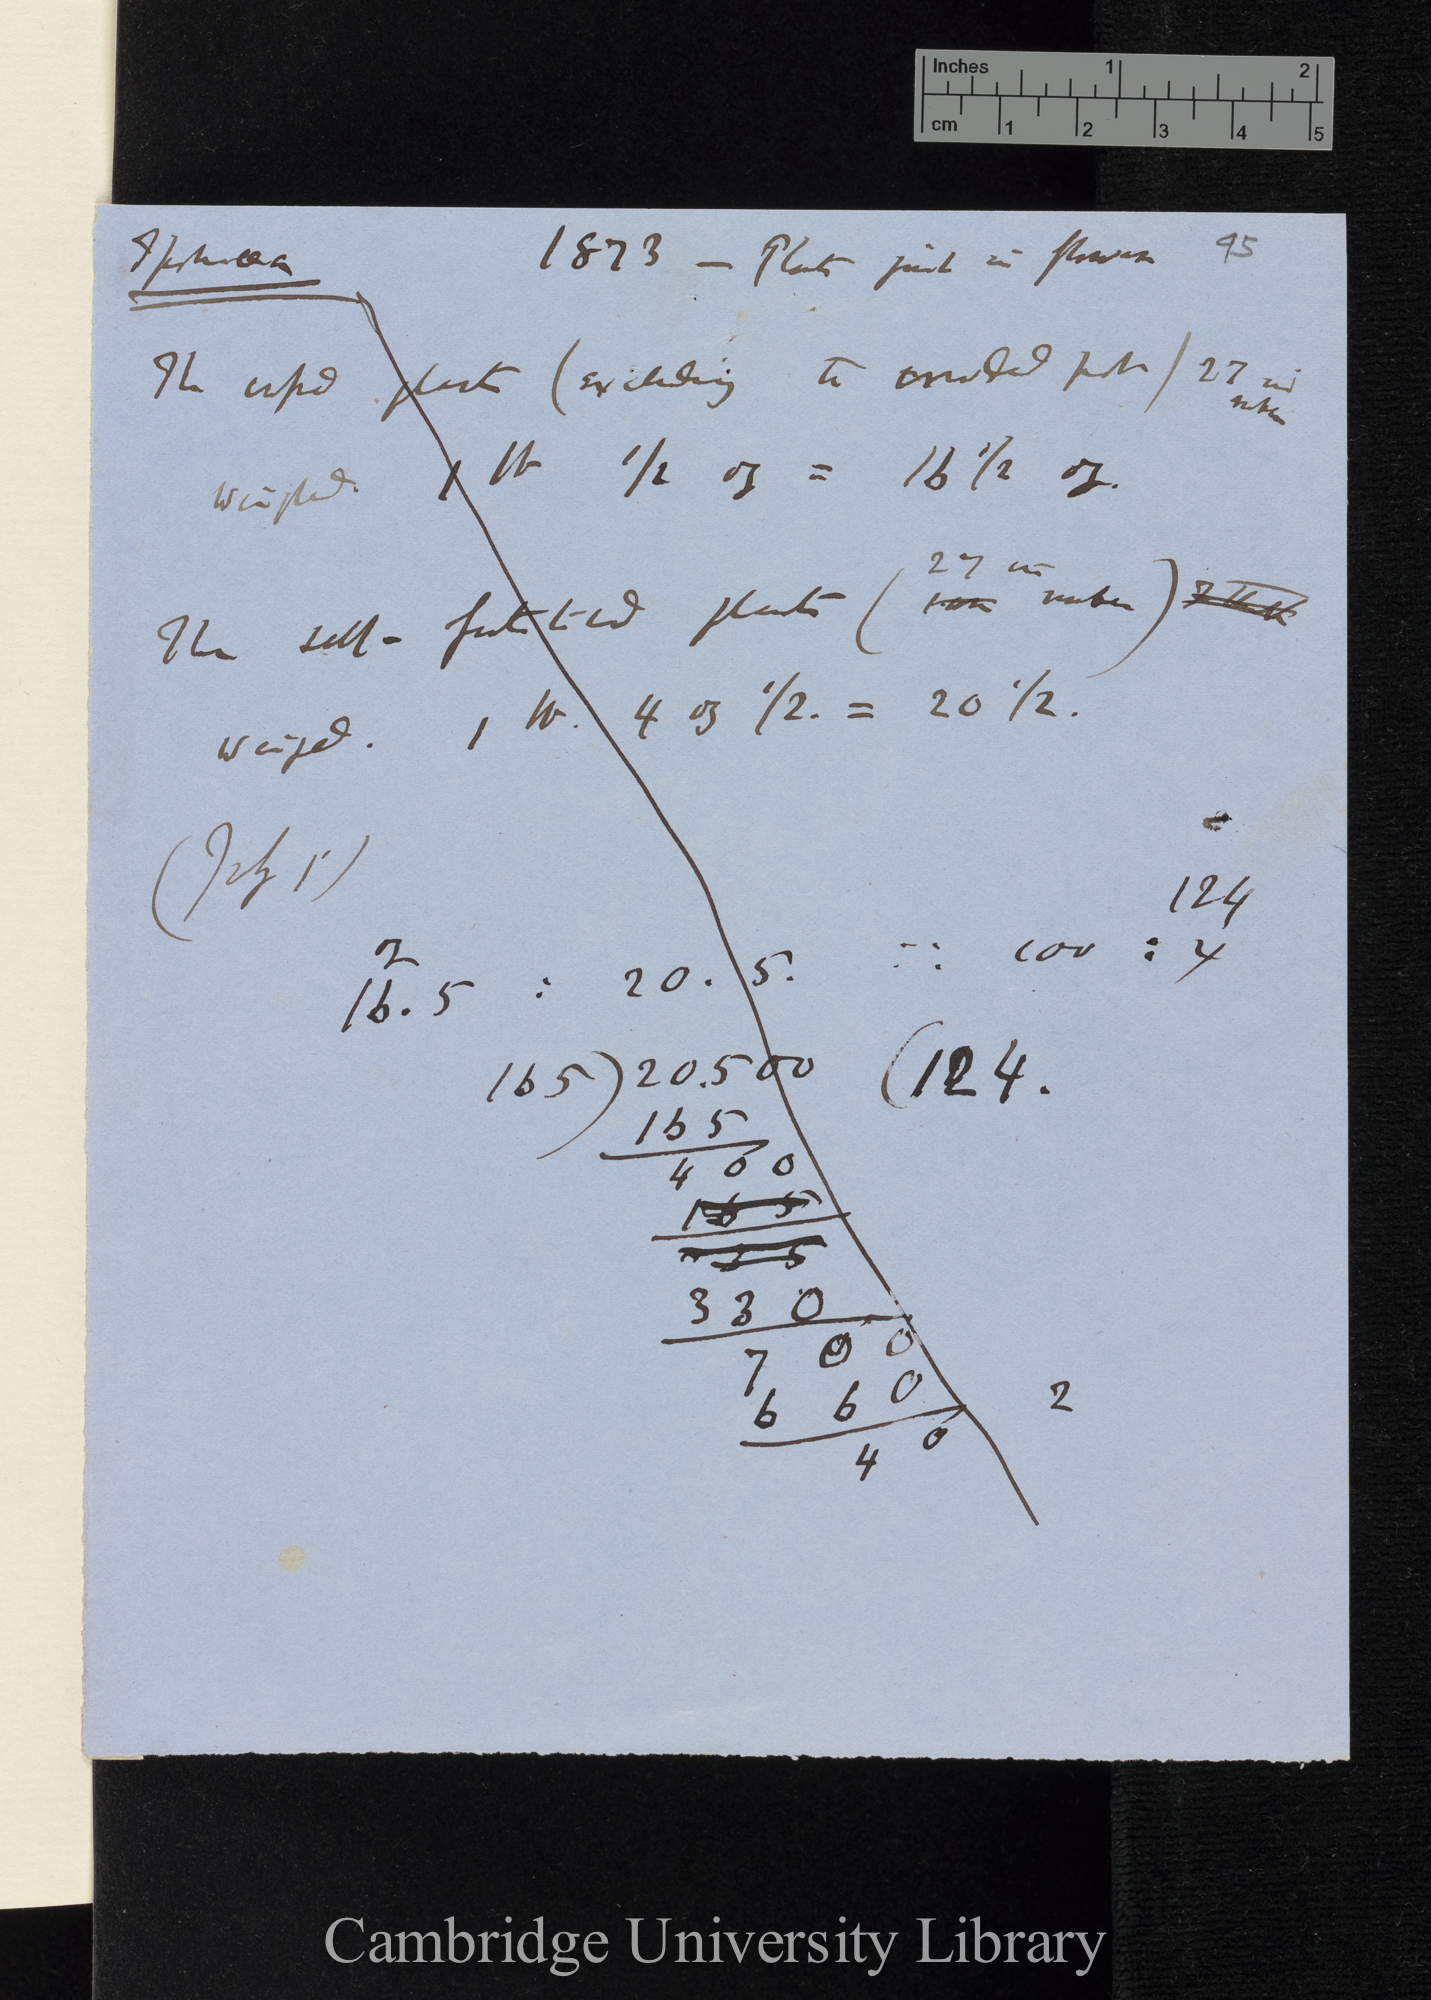 Inches 1 2
cm 1 2 3 4 5
Ipomoea 1873 — Plants just in flower 95
The crossed plants (excluding the crowded pots) 27 in
number
weighed. 1 lb 1/2 oz = 16 1/2 oz.
27 in
The self-fertilised plants ( number)
weighed. 1 lb. 4 oz 1/2. = 20 1/2.
(July 1)
124
16.5 : 20.5. :: 100 : x
165) 20.500 (124.
165
400
165
330
700
660 2
40
Cambridge University Library